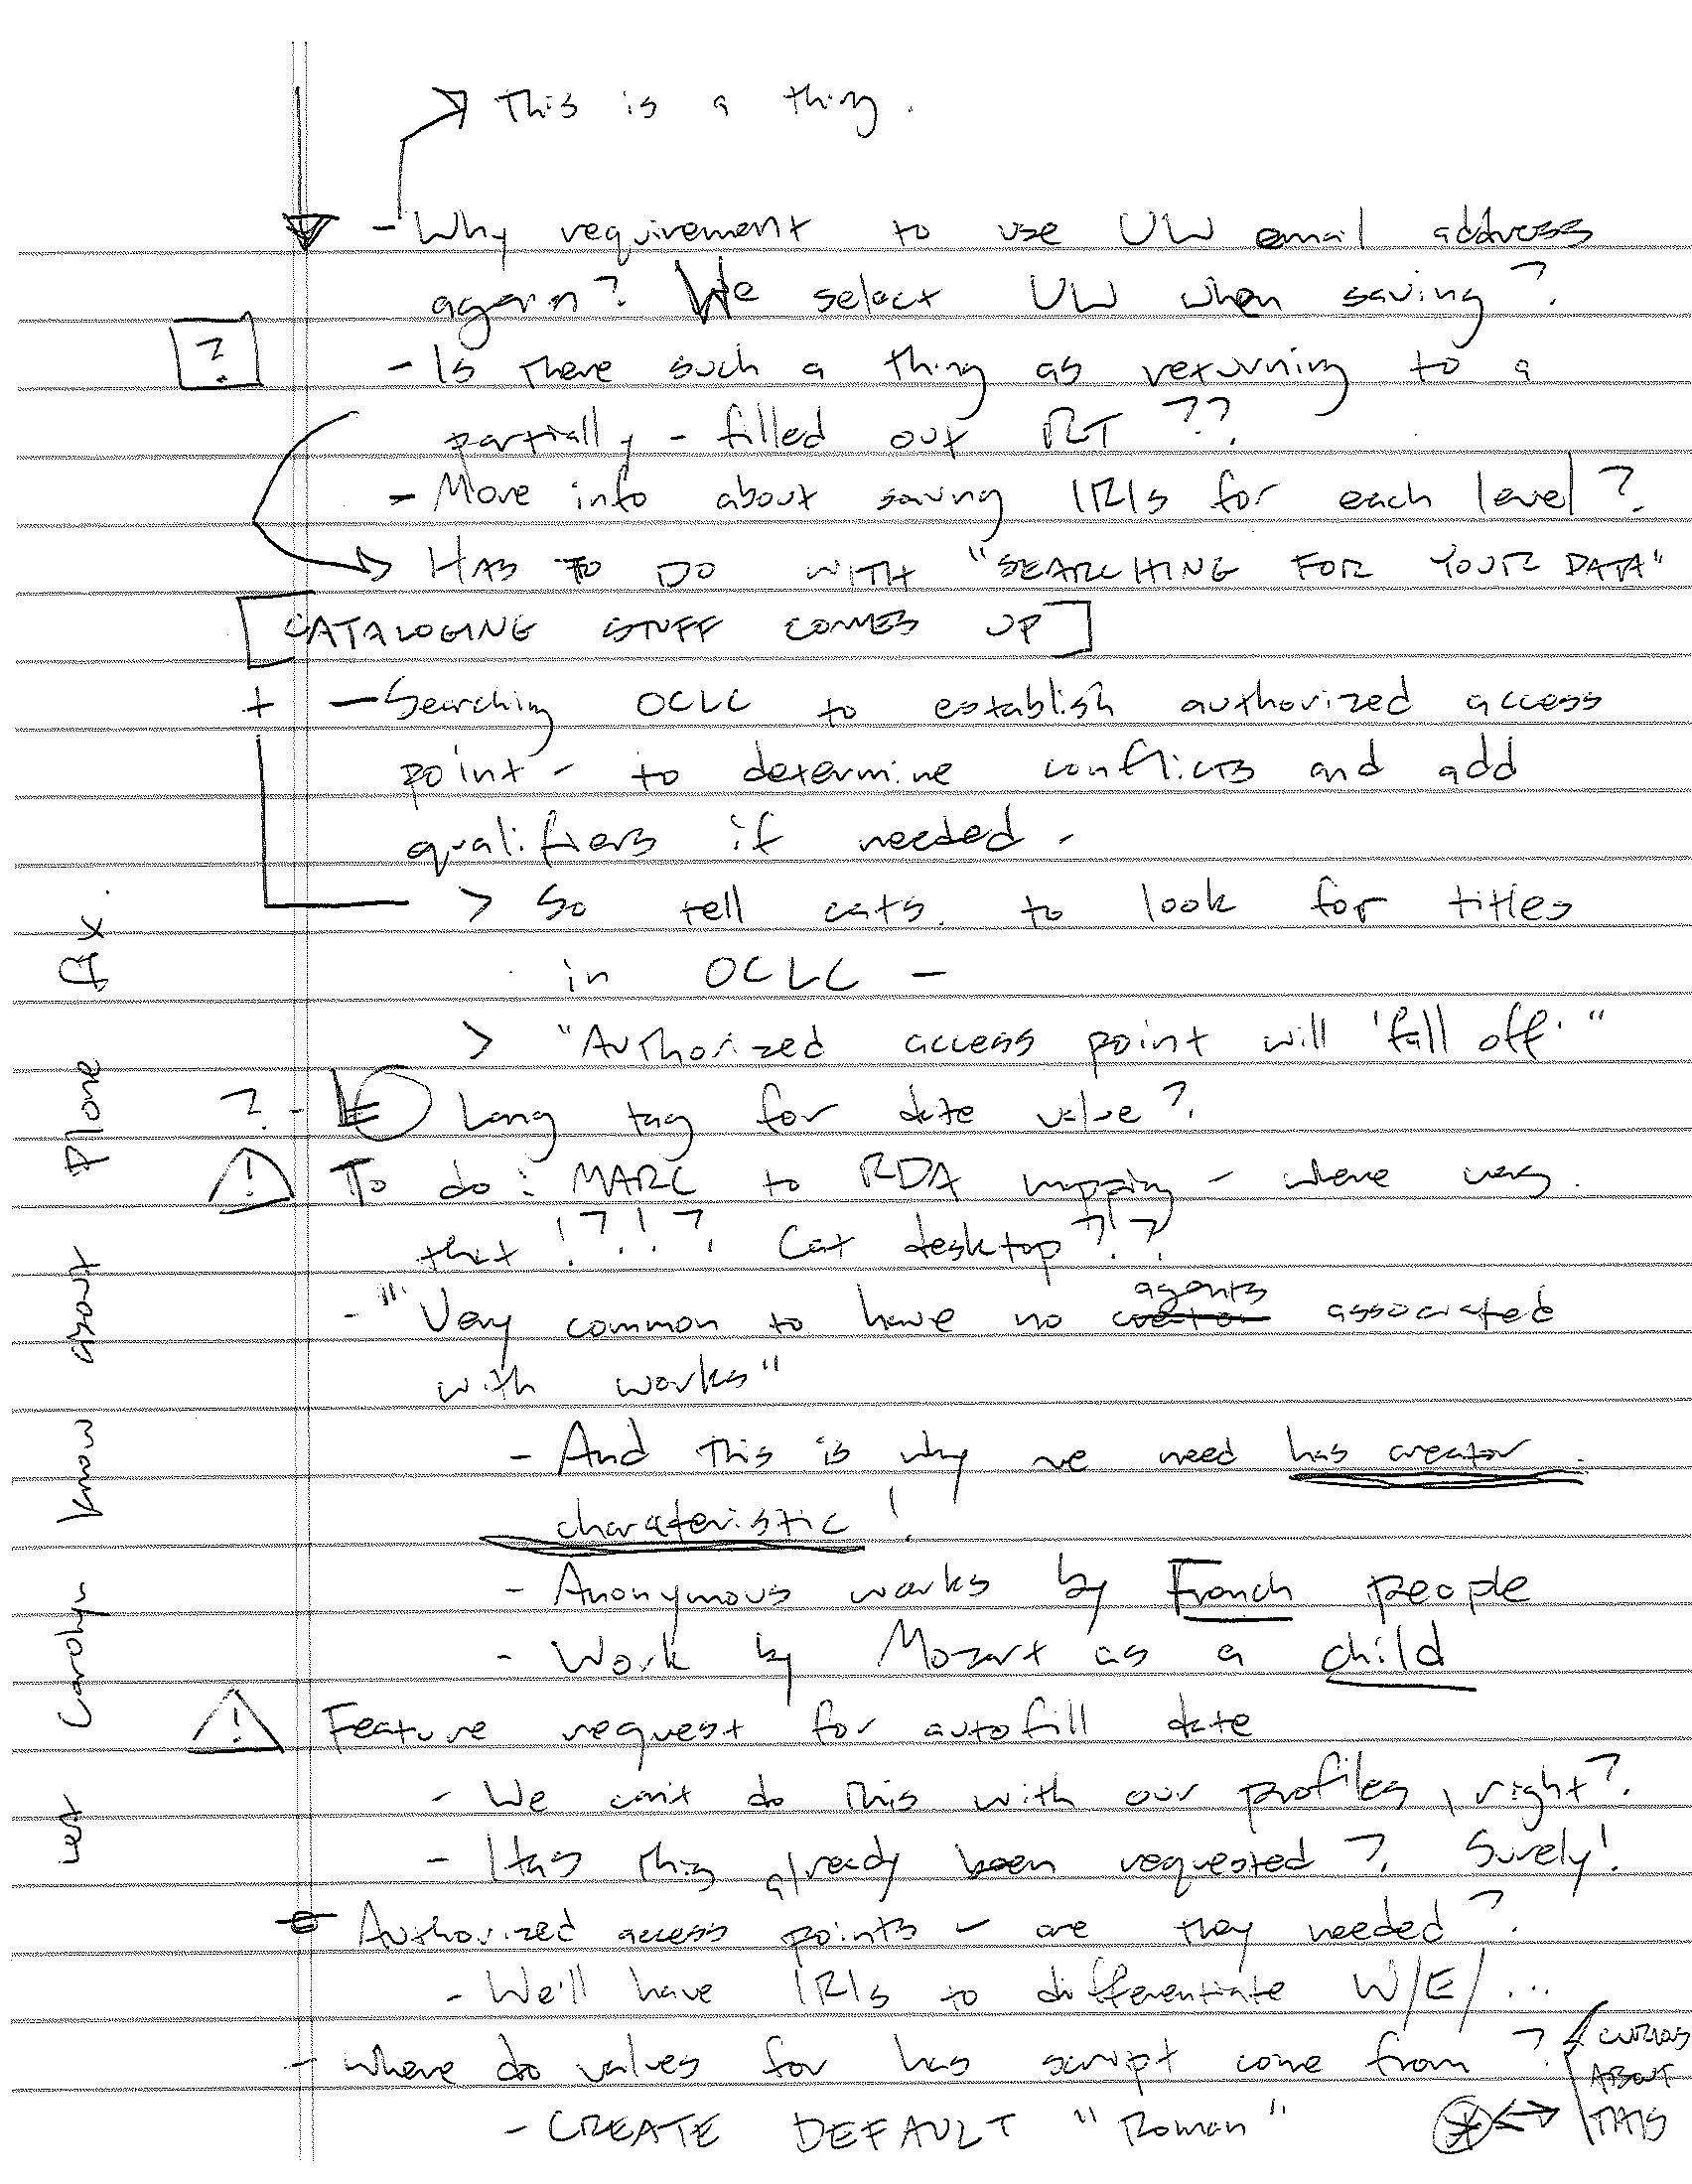 This is a thing.
- Why requirement to use UW email address
again? We select UW when saving?
? - Is there such a thing as returning to a
partially-filled out RT??
- More info about saving IRIs for each level?
HAS TO DO WITH "SEARCHING FOR YOUR DATA"
[CATALOGING STUFF COMES UP]
+ - Searching OCLC to establish authorized access
point - to determine conflicts and add
qualifiers if needed -
> So tell cats. to look for titles
in OCLC -
> "Authorized access point will 'fall off'"
? - Lang tag for date value?
! To do: MARC to RDA mapping - where was
that!?!? Cat desktop???
- "Very common to have no agents associated
with works"
- And this is why we need has creator
charateristic!
- Anonymous works by French people
- Work by Mozart as a child
! Feature request for autofill date
- We can't do this with our profiles, right?
- Has this already been requested? Surely!
Authorized access points - are they needed?
- We'll have IRIs to differentiate W/E/...
- where do values for has script come from?
CURIOUS
ABOUT
THIS
- CREATE DEFAULT "Roman"
Let Carolyn know about Plone fix.